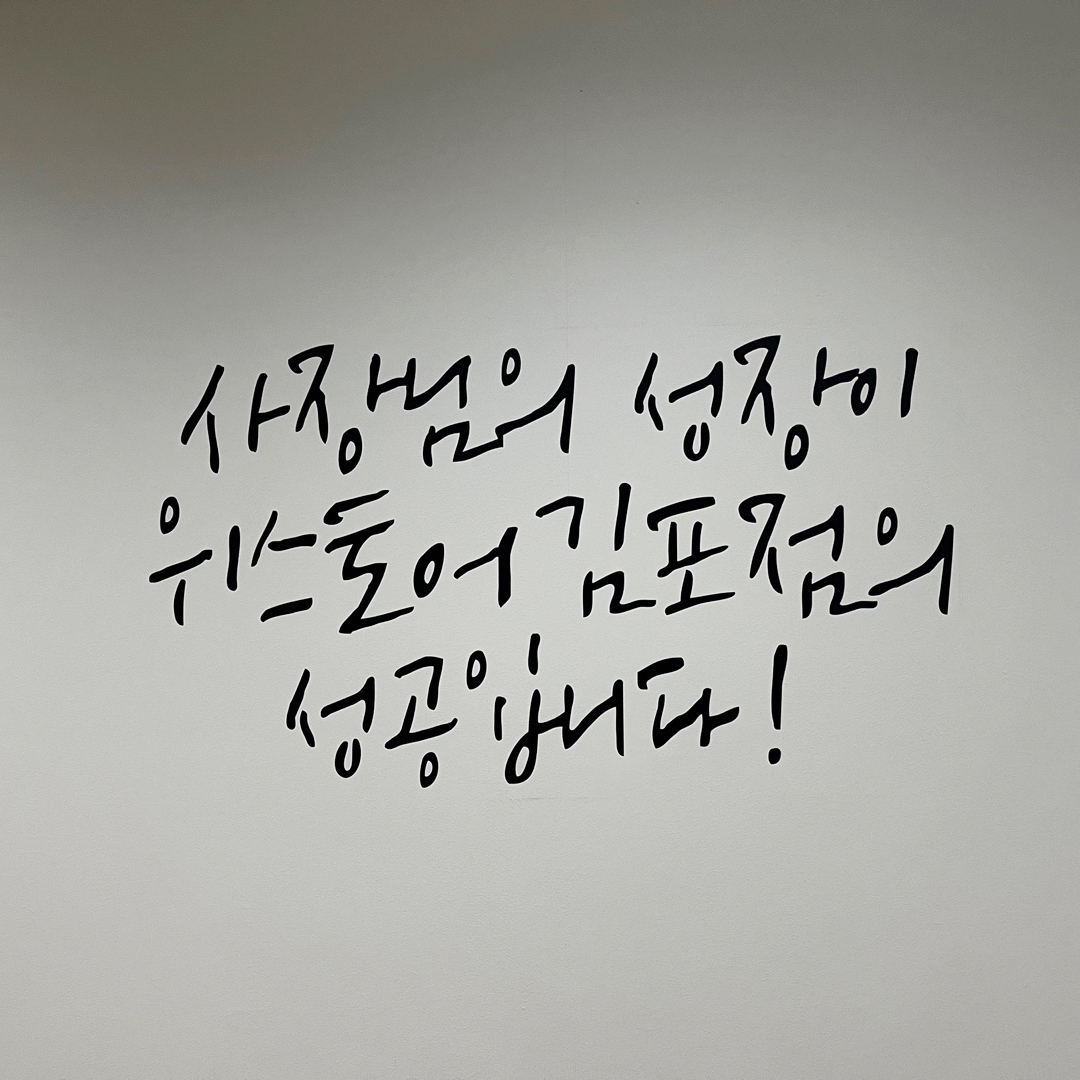 사장님의 성장이
위스돌어 김포점의
성공입니다!